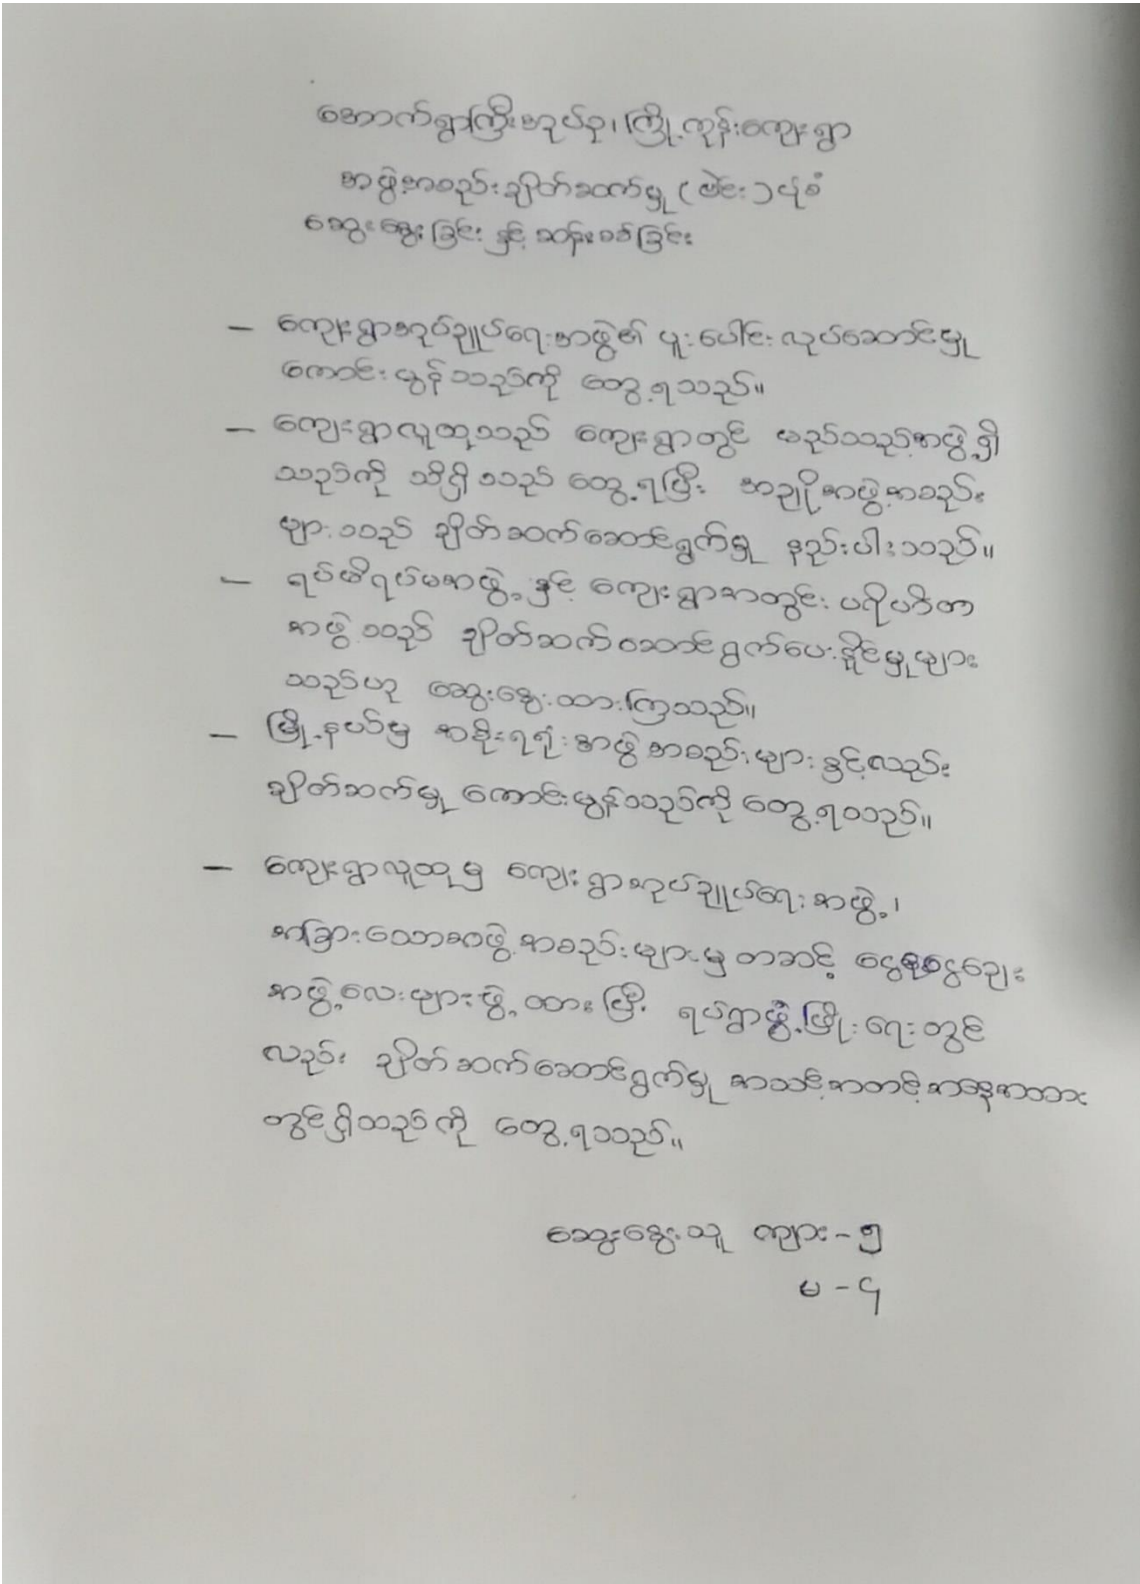 အောက်ရွာကြီးအုပ်စု၊ ကြို့ကုန်းကျေးရွာ
အဖွဲ့အစည်းချိတ်ဆက်မှု (ဗဲင်း) ပုံစံ
ဆွေးနွေးခြင်း နှင့် ဆန်းစစ်ခြင်း
– ကျေးရွာအုပ်ချုပ်ရေးအဖွဲ့၏ ပူးပေါင်းလုပ်ဆောင်မှု
ကောင်းမွန်သည်ကို တွေ့ရသည်။
– ကျေးရွာလူထုသည် ကျေးရွာတွင် မည်သည့်အဖွဲ့ရှိ
သည်ကို သိရှိသည် တွေ့ရပြီး အချို့အဖွဲ့အစည်း
များသည် ချိတ်ဆက်ဆောင်ရွက်မှု နည်းပါးသည်။
– ရပ်မိရပ်ဖအဖွဲ့ နှင့် ကျေးရွာအတွင်း ပရဟိတ
အဖွဲ့သည် ချိတ်ဆက်ဆောင်ရွက်ပေးနိုင်မှုများ
သည်ဟု ဆွေးနွေးထားကြသည်။
– မြို့နယ်မှ အစိုးရရုံးအဖွဲ့အစည်းများနှင့်လည်း
ချိတ်ဆက်မှု ကောင်းမွန်သည်ကို တွေ့ရသည်။
– ကျေးရွာလူထုမှ ကျေးရွာအုပ်ချုပ်ရေးအဖွဲ့၊
အခြားသောအဖွဲ့အစည်းများမှ တဆင့် ငွေစုငွေချေး
အဖွဲ့လေးများဖွဲ့ထားပြီး ရပ်ရွာဖွံ့ဖြိုးရေးတွင်
လည်း ချိတ်ဆက်ဆောင်ရွက်မှု အသင့်အတင့်အနေအထား
တွင်ရှိသည်ကို တွေ့ရသည်။
ဆွေးနွေးသူ ကျား – ၅
မ – ၄